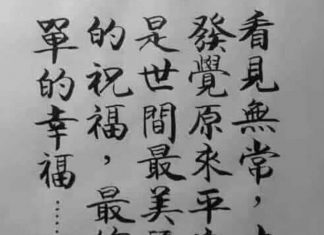 看見無常，
發覺原來平
是世間最美
的祝福，最
單的幸福……